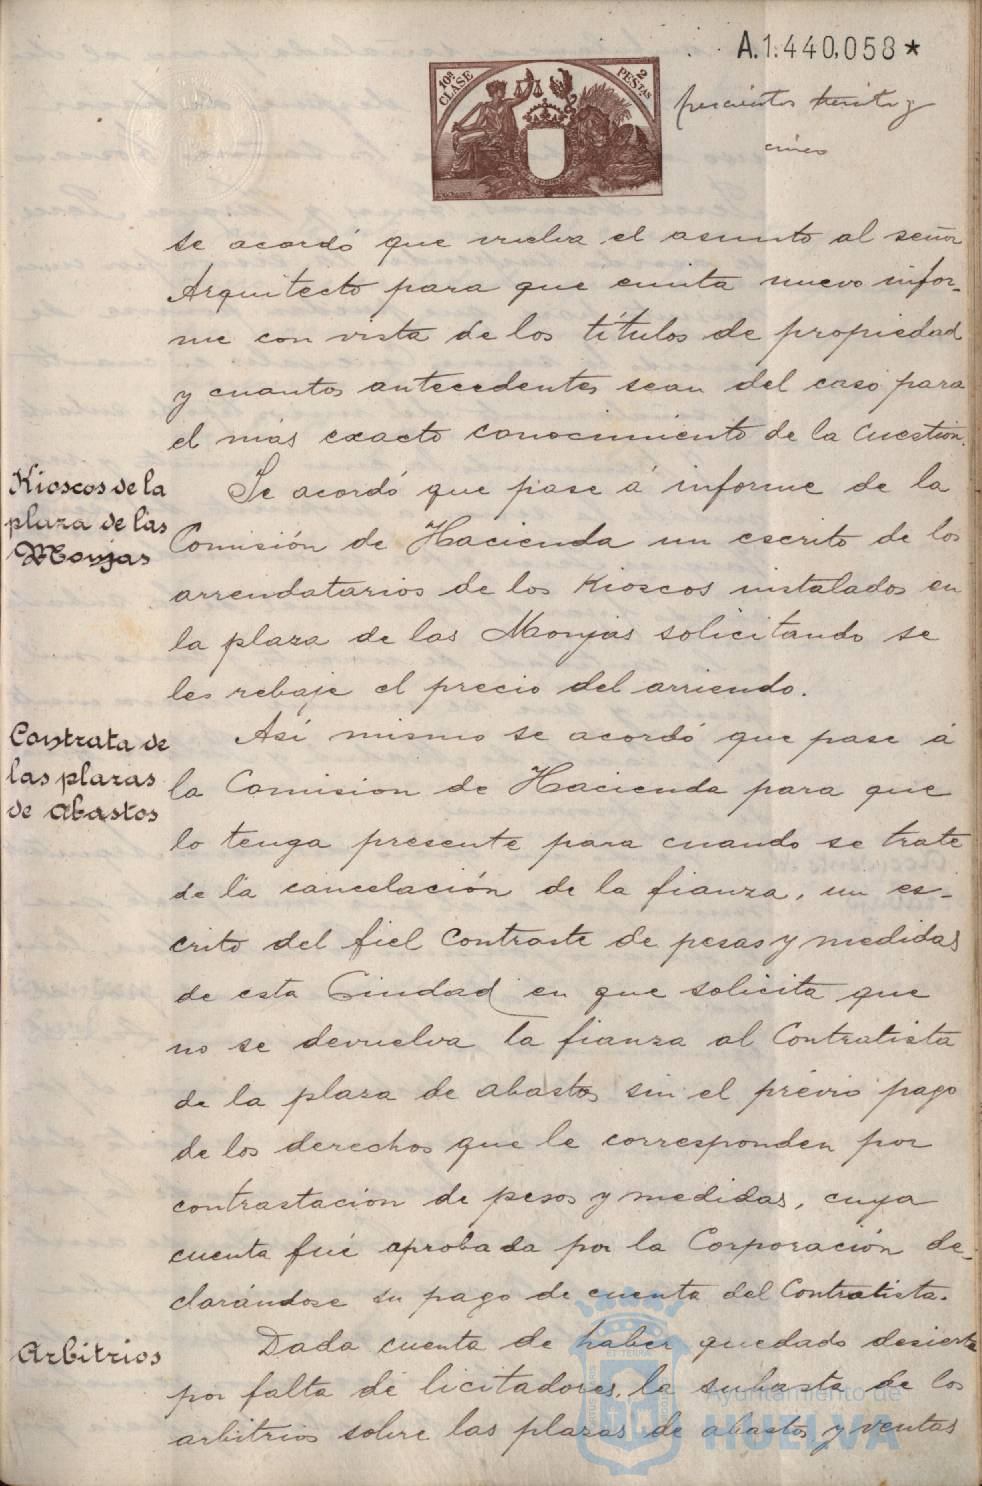 A.1.440,058*
10ª CLASE
2 PESETAS
treinta y
cinco
se acordó que vuelva el asunto al señor
Arquitecto para que emita nuevo infor-
me con vista de los títulos de propiedad
y cuantos antecedentes sean del caso para
el más exacto conocimiento de la cuestión.
Kioscos de la
plaza de las
Monjas
Se acordó que pase á informe de la
Comisión de Hacienda un escrito de los
arrendatarios de los Kioscos instalados en
la plaza de las Monjas solicitando se
les rebaje el precio del arriendo.
Contrata de
las plazas
de Abastos
Así mismo se acordó que pase á
la Comision de Hacienda para que
lo tenga presente para cuando se trate
de la cancelación de la fianza, un es-
crito del fiel Contraste de pesas y medidas
de esta Ciudad en que solicita que
no se devuelva la fianza al Contratista
de la plaza de abastos sin el prévio pago
de los derechos que le corresponden por
contrastación de pesos y medidas, cuya
cuenta fué aprobada por la Corporación de-
clarándose su pago de cuenta del Contratista.
Arbitrios
Dada cuenta de haber quedado desierta
por falta de licitadores, la subasta de los
arbitrios sobre las plazas de abastos y ventas
Ayuntamiento de
HUELVA